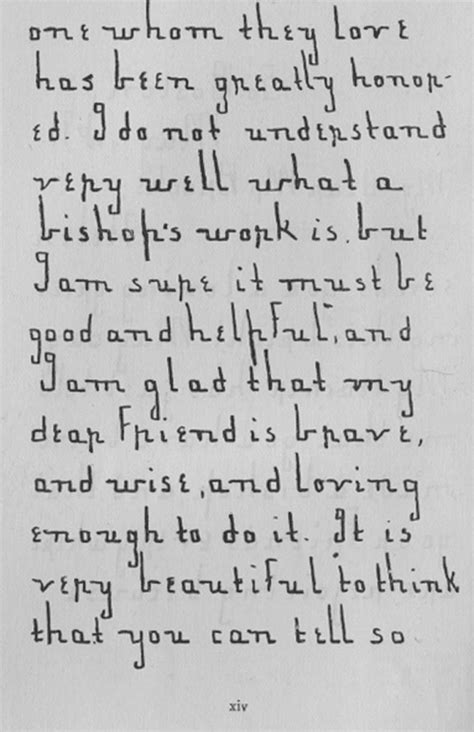 one whom they love
has been greatly honor-
ed. I do not understand
very well what a
bishop's work is, but
I am sure it must be
good and helpful, and
I am glad that my
dear friend is brave,
and wise, and loving
enough to do it. It is
very beautiful to think
that you can tell so
xiv